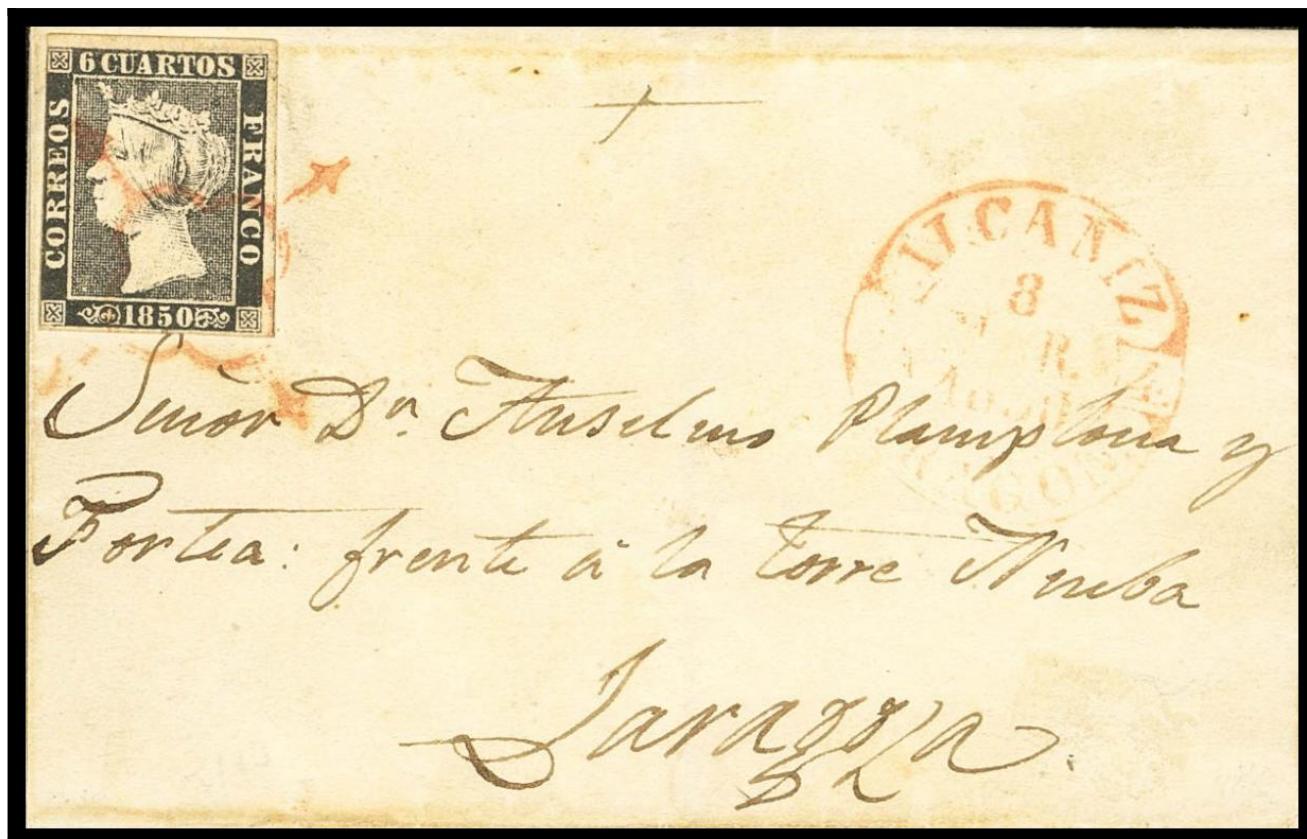 6 CUARTOS
CORREOS
FRANCO
1850
ALCAÑIZ
8
Señor Dn. Anselmo Plamplona y
Fortea: frente á la torre Nueba
Zaragoza.